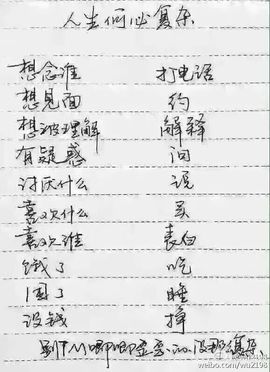 人生何必复杂
想念谁 打电话
想见面 约
想被理解 解释
有疑惑 问
讨厌什么 说
喜欢什么 买
喜欢谁 表白
饿了 吃
困了 睡
没钱 挣
别TM唧唧歪歪的没那么复杂
weibo.com/wu2198